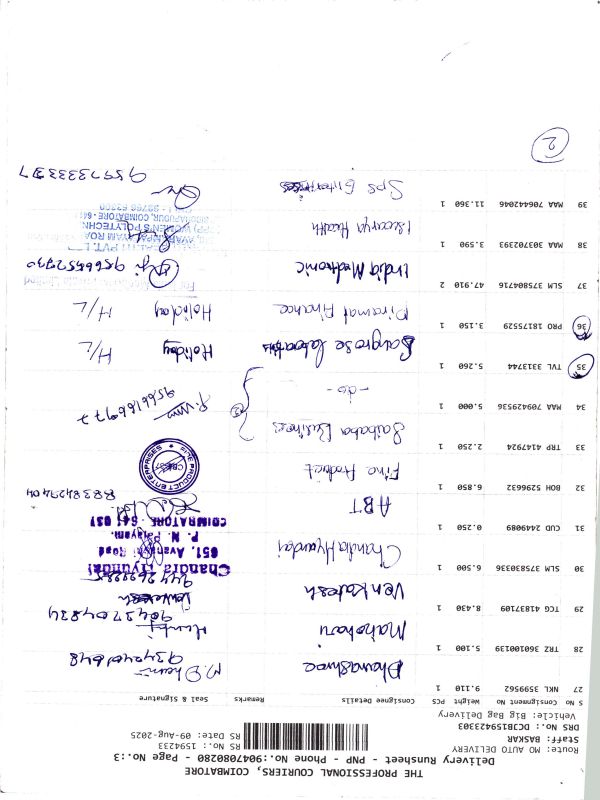 THE PROFESSIONAL COURIERS, COIMBATORE
Delivery Runsheet - PNP - Phone No.:9047080280 - Page No.:3
Route: MO AUTO DELIVERY
Staff: BASKAR
DRS No.: DCJB159423303
Vehicle: Big Bag Delivery
RS No.: 1594233
RS Date: 09-Aug-2025
S No Consignment No Weight PCS Consignee Details Remarks Seal & Signature
27 NKL 3599569 9.110 1 Dhanashree 9342401648
28 TRZ 360100139 5.100 1 Manohari 9043704834
29 TCG 41837109 8.430 1 Venkatesh Venkatesh
30 SLM 375830336 6.500 1 Chandra Hyundai Chandra Hyundai
651, Avanashi Road
P. N. Palayam.
COIMBATORE - 641 037
31 CUD 2449089 0.250 1 ABT
32 BOH 5296632 6.850 1 Fine Product FINE PRODUCT ENTERPRISES
33 TRP 4147924 2.250 1 Saibaba Business
34 MAA 709429536 5.000 1 -do- 9566166977
35 TVL 3313744 5.260 1 Holiday H/L
36 PRO 18175529 3.150 1 Piramal Finance Holiday H/L
37 SLM 375804716 47.910 2 India Medtronic 9566552730
38 MAA 303702393 3.590 1 Health
39 MAA 706442046 11.360 1 Sps Enterprises 9597333337
2